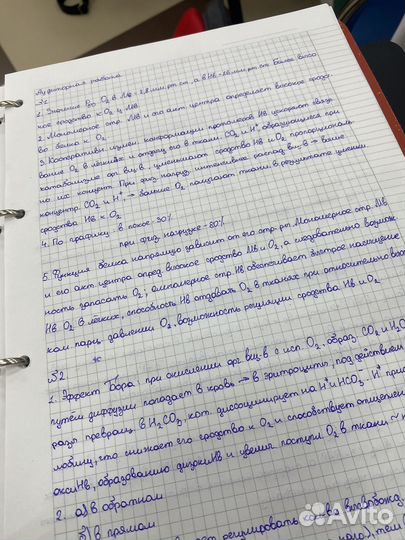 Аудиторная работа
§1
1. Значение P50 O2 в Mb - 2,8 мм.рт.ст., а в Hb - 26 мм.рт.ст. Более высо-
кое сродство к O2 у Mb.
2. Мономерное стр. Mb и его акт. центра определяет высокое сродс-
во белка к O2
3. Кооперативн. измен. конформации протомеров Hb ускоряет связы-
вание O2 в лёгких и отдачу его в ткани. CO2 и H+, образующиеся при
катаболизме орг. вщ-в, уменьшают сродство Hb к O2 пропорциональ-
но их концентр. При физ. нагруз. интенсивнее распад вщ-в → выше
концентр. CO2 и H+ → больше O2 получают ткани в результате уменьш.
сродства Hb к O2.
4. По графику: в покое - 30%
при физ. нагрузке - 80%
5. Функция белка напрямую зависит от его стр-ры. Мономерное стр. Mb
и его акт. центра опред. высокое сродство Mb и O2, а следовательно возмож-
ность запасать O2; олигомерное стр. Hb обеспечивает быстрое насыщение
Hb O2 в лёгких, способность Hb отдавать O2 в тканях при относительно высо-
ком парц. давлении O2, возможность регуляции сродства Hb и O2.
§2
1. Эффект Бора: при окислении орг. вщ-в с исп. O2, образ. CO2 и H2O
путём диффузии попадает в кровь → в эритроциты, под действием
превращ. в H2CO3, кот. диссоциирует на H+ и HCO3-. H+
что снижает его сродство к O2 и способствует отщеплен
оксиHb, образованию дезоксиHb и увелич. поступл. O2 в ткани ~
2. а) в обратном
б) в прямом
регулировать
Avito